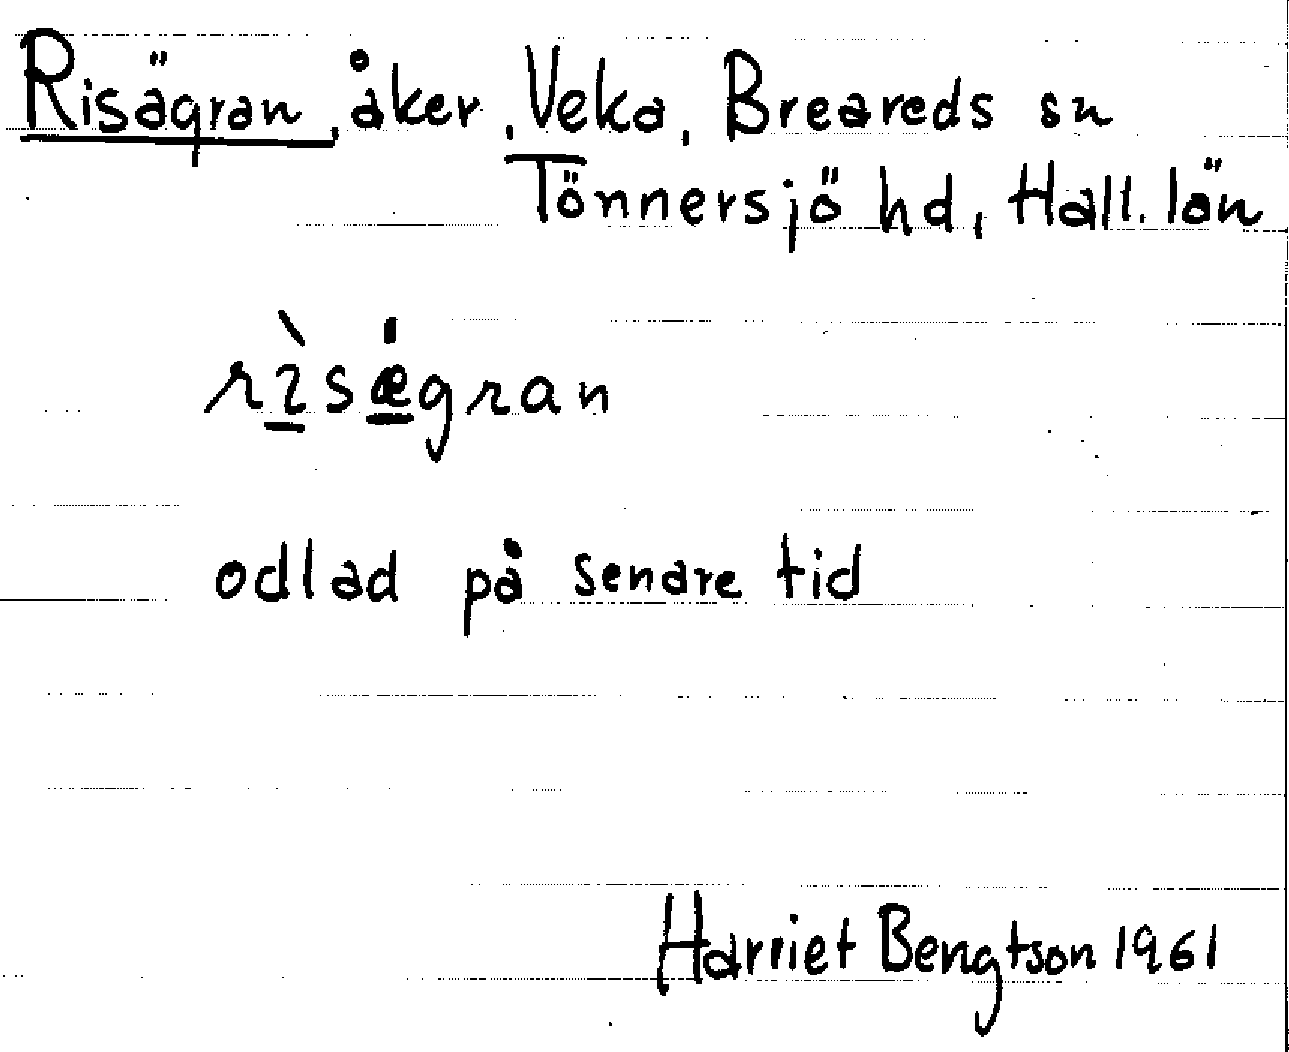 Risägran, åker, Veka, Breareds sn
Tönnersjö hd, Hall. län
rìsǽgran
odlad på senare tid
Harriet Bengtson 1961